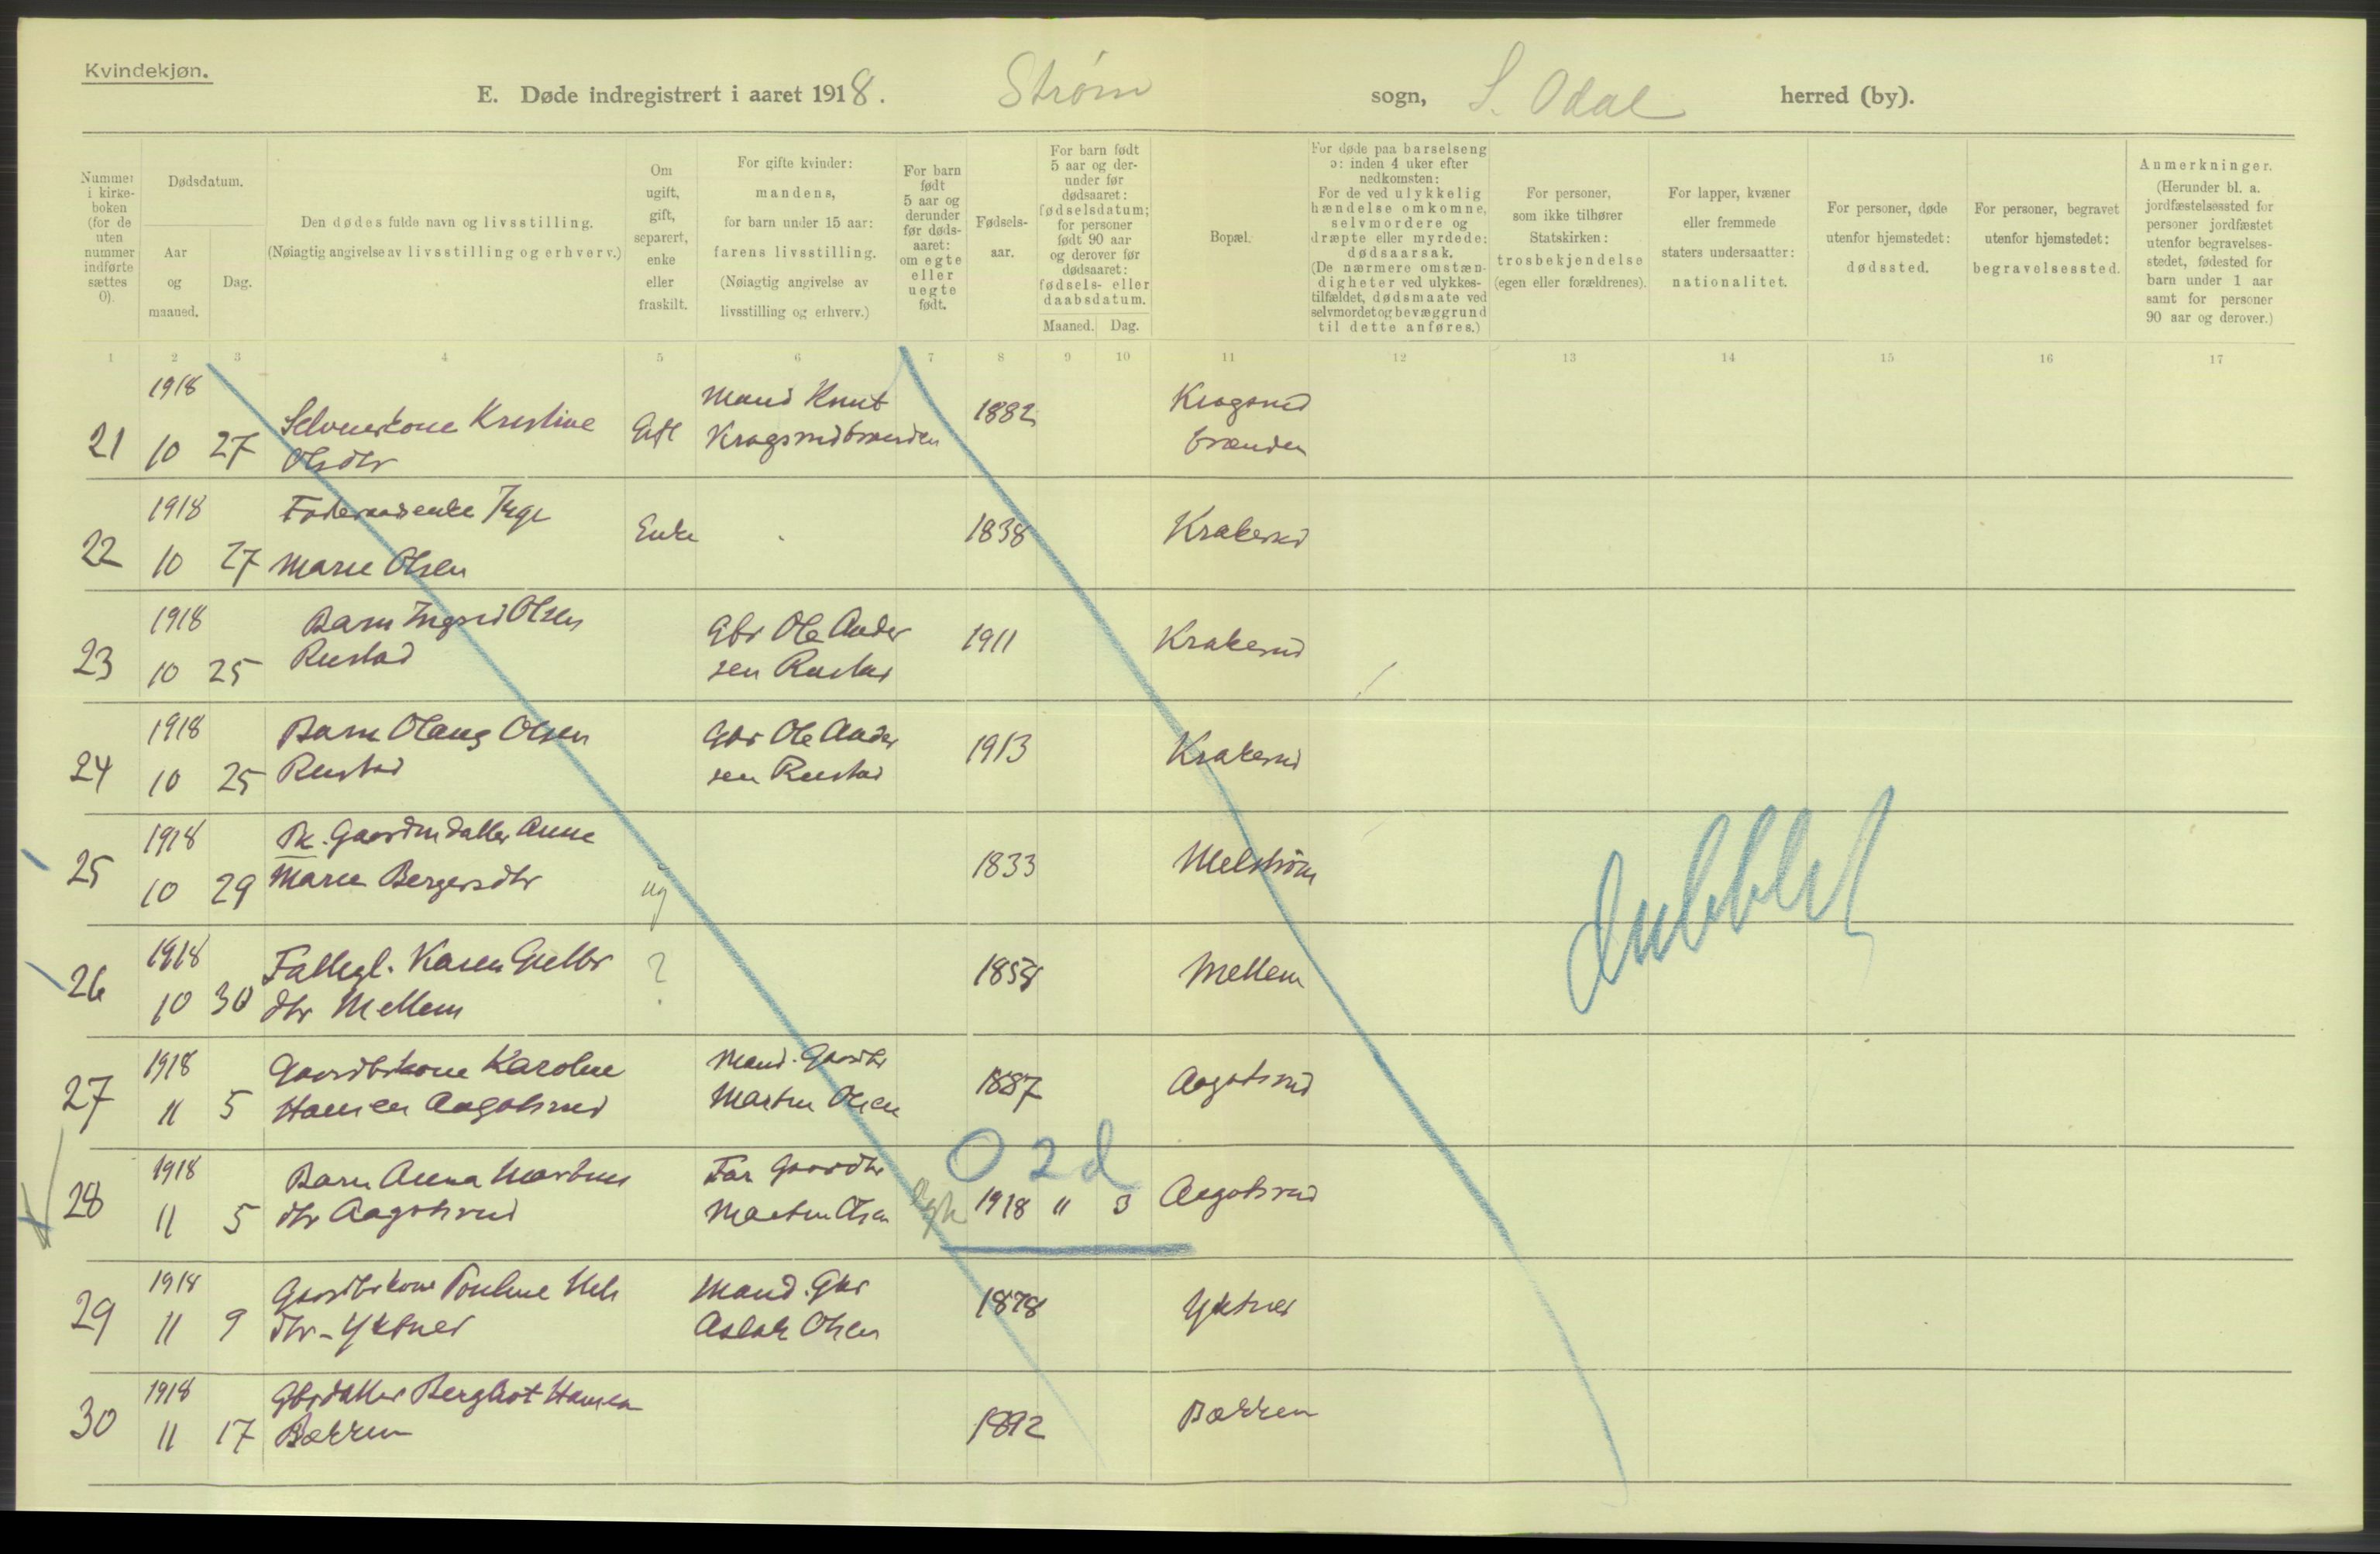 Kvindekjøn.
E. Døde indregistrert i aaret 1918. Strøm sogn, S. Odal herred (by).
Nummer i kirkeboken (for de uten nummer indførte sættes 0).
Dødsdatum.
Aar og maaned.
Dag.
Den dødes fulde navn og livsstilling.
(Nøiagtig angivelse av livsstilling og erhverv.)
Om ugift, gift, separert, enke eller fraskilt.
For gifte kvinder: mandens, for barn under 15 aar: farens livsstilling. (Nøiagtig angivelse av livsstilling og erhverv.)
For barn født 5 aar og derunder før dødsaaret: om egte eller uegte født.
Fødselsaar.
For barn født 5 aar og derunder før dødsaaret: fødselsdatum; for personer født 90 aar og derover før dødsaaret: fødsels- eller daabsdatum.
Maaned. Dag.
Bopæl.
For døde paa barselseng ɔ: inden 4 uker efter nedkomsten: For de ved ulykkelig hændelse omkomne, selvmordere og dræpte eller myrdede: dødsaarsak. (De nærmere omstændigheter ved ulykkestilfældet, dødsmaate ved selvmordet og bevæggrund til dette anføres.)
For personer, som ikke tilhører Statskirken: trosbekjendelse (egen eller forældrenes).
For lapper, kvæner eller fremmede staters undersaatter: nationalitet.
For personer, døde utenfor hjemstedet: dødssted.
For personer, begravet utenfor hjemstedet: begravelsessted.
Anmerkninger. (Herunder bl. a. jordfæstelsessted for personer jordfæstet utenfor begravelsesstedet, fødested for barn under 1 aar samt for personer 90 aar og derover.)
1 2 3 4 5 6 7 8 9 10 11 12 13 14 15 16 17
1918 Mand Knut Kragsrud
21 10 27 Selveierkone Kristine Gift Kragsrudbrænden 1882 brænden
Olsdtr
1918 Føderaadsenke Inge
22 10 27 Marie Olsen Enke 1838 Krakerud
1918 Barn Ingrid Olsen Gbr Ole Ander
23 10 25 Rustad sen Rustad 1911 Krakerud
1918 Barn Olaug Olsen Gbr Ole Ander
24 10 25 Rustad sen Rustad 1913 Krakerud
1918 Pk. Gaardmdatter Anne
25 10 29 Marie Bergersdtr ug 1833 Melstrøm
1918 Fattigl. Karen Gulbr ?
26 10 30 dtr Mellem 1858 Mellem
1918 Gaardbrkone Karoline Mand. Gaardbr
27 11 5 Hansen Aagotsrud Martin Olsen 1887 Aagotsrud
0 2 d
1918 Barn Anna Martins Far Gaardbr
28 11 5 dtr Aagotsrud Martin Olsen 1918 11 3 Aagotsrud
1918 Gaardbrkone Pouline Nils Mand. Gbr
29 11 9 dtr - Yktner Aslak Olsen 1878 Yktner
1918 Gbrdatter Bergliot Hansen
30 11 17 Bækken 1892 Bækken
dubblet